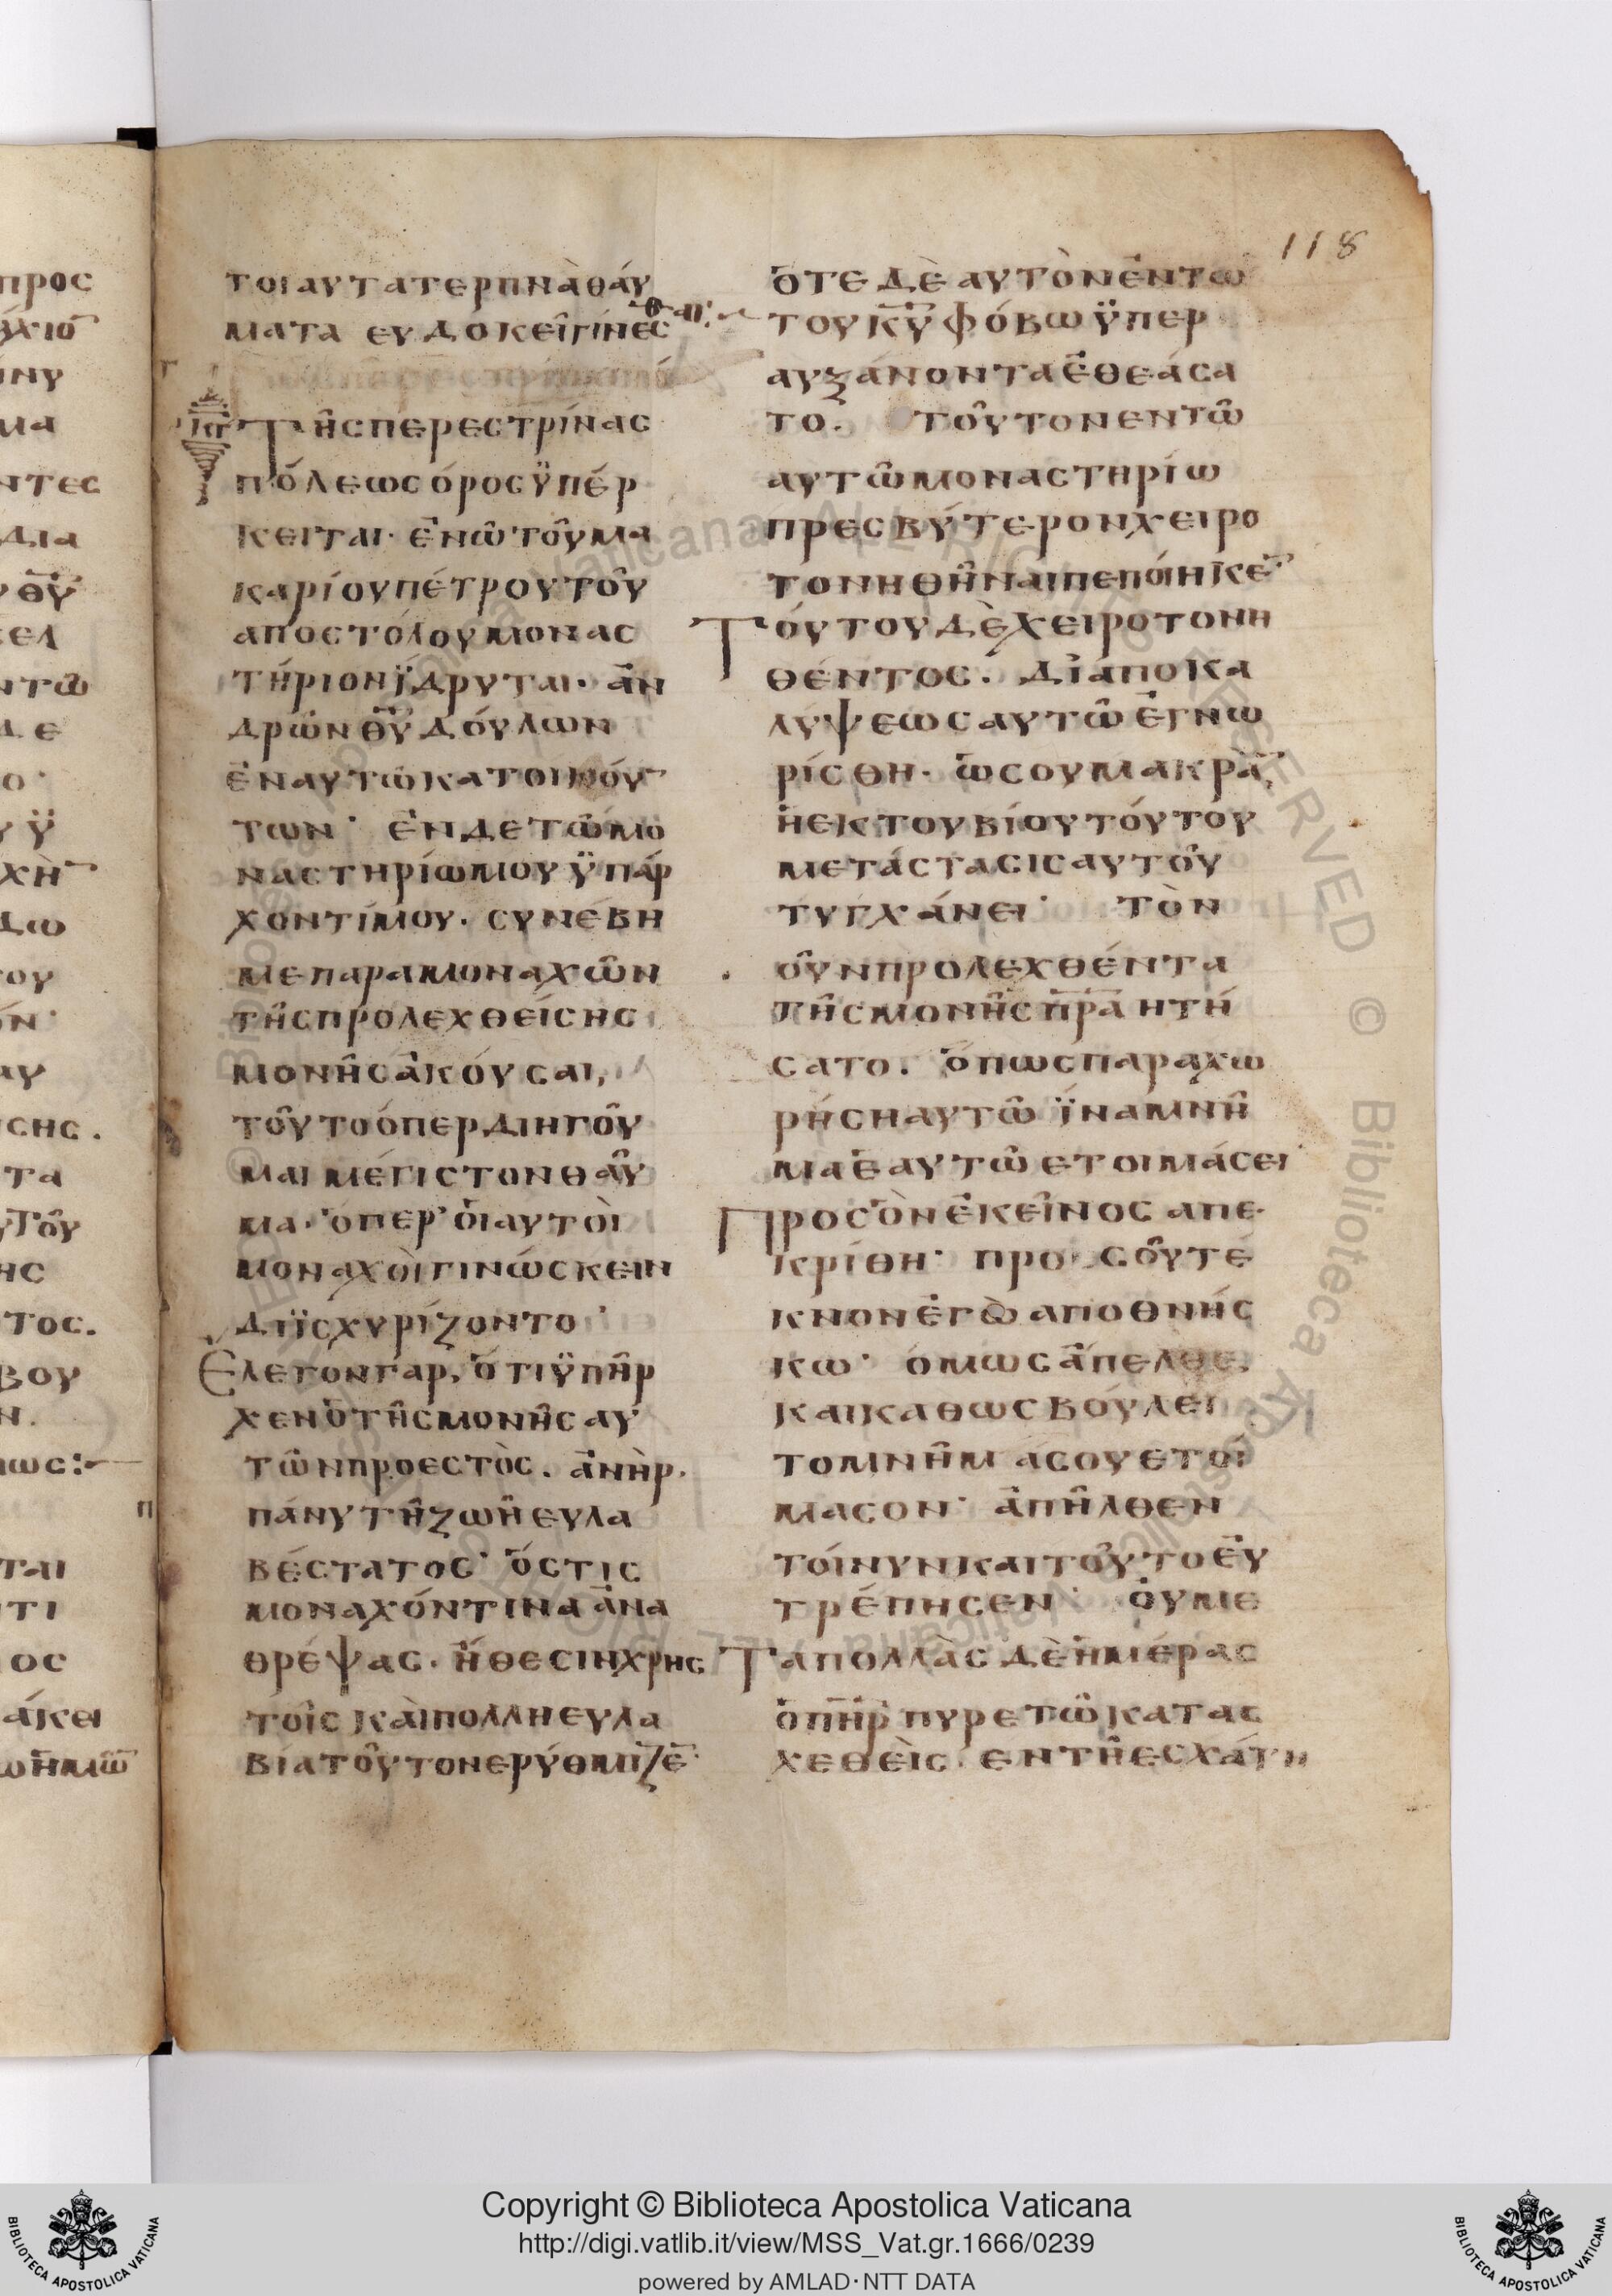 118
τοιαυτατερπνὰθάυ
ματα ευδοκεῖγίνες
θαι:
κγ
Τῆσπερεστρίνας
πόλεωσόροσϋπέρ
κειται· ἐνῶτοῦμα
καρίουπέτρουτοῦ
αποστόλουμονας
τήριονἵδρυται· ἀν
δρῶνθ̅υ̅δόυλων
ἐναυτῶκατοικόυ̅
των· ἐνδετῶμο
ναστηρίωμουϋπάρ
χοντίμου. συνέβη
μεπαραμοναχῶν
τῆσπρολεχθείσης
μονῆσἀκόυσαι,
τοῦτοόπερδιηγοῦ
μαιμέγιστονθαῦ
μα· ὅπερ ὁιαυτοὶ
μοναχὸιγινώσκειν
διϊσχυρίζοντο·
Ελεγονγαρ, ὅτιϋπῆρ
χενὁτῆσμονῆσαυ
τῶνπροεστὸς. ἀνὴρ.
πάνυτῆζωῆευλα
βέστατος· ὅστις
μοναχόντιναἀνα
θρέψας. ἤθεσινχρης
τοῖσκὰιπολληευλα
βίατοῦτονερύθμιζε̅·
ὅτεδὲαυτὸνἐντω
τουκ̅υ̅φόβωϋπερ
αυξάνονταἐθεάσα
το. τοῦτονεντῶ
αυτῶμοναστηρίω
πρεσβύτερονχειρο
τονηθῆναιπεποίηκε̅
Τόυτουδὲχειροτονη
θέντος. δἰαποκα
λύψεωσαυτῶἐγνω
ρίσθη· ὡσουμακρὰ̅,
ἡεκτουβίουτόυτου
μετάστασισαυτοῦ
τυγχάνει· τὸν
οῦνπρολεχθέντα
τῆσμονῆσπ̅ρ̅α̅ητή
σατο. ὅπωσπαραχω
ρήσηαυτῶϊναμνῆ
μαἑαυτῶετοιμάσει·
Προσὃνἐκεῖνοσαπε
κρίθη· προσοῦτέ
κνονἐγὼαποθνής
κω· όμωσἄπελθε,
καικαθωσβόυλει
τομνῆμάσουετοί
μασον· ἀπῆλθεν
τοίνυνκαιτοῦτοἐυ
τρέπησεν· ὀυμε
Ταπολλὰσδὲἡμέρας
ὁπ̅η̅ρ̅πυρετῶκατας
χεθὲις. εντῆεσχάτη
προς
ντες
δια
θ̅υ̅
ελ
δε
χὴ̅
δω
του
σης.
τα
τοῦ
ης
τος.
βου
ν.
ως:
ται
τι
ος
άκει
ωἡμῶ̅
Copyright © Biblioteca Apostolica Vaticana
http://digi.vatlib.it/view/MSS_Vat.gr.1666/0239
powered by AMLAD·NTT DATA
BIBLIOTECA APOSTOLICA VATICANA
BIBLIOTECA APOSTOLICA VATICANA